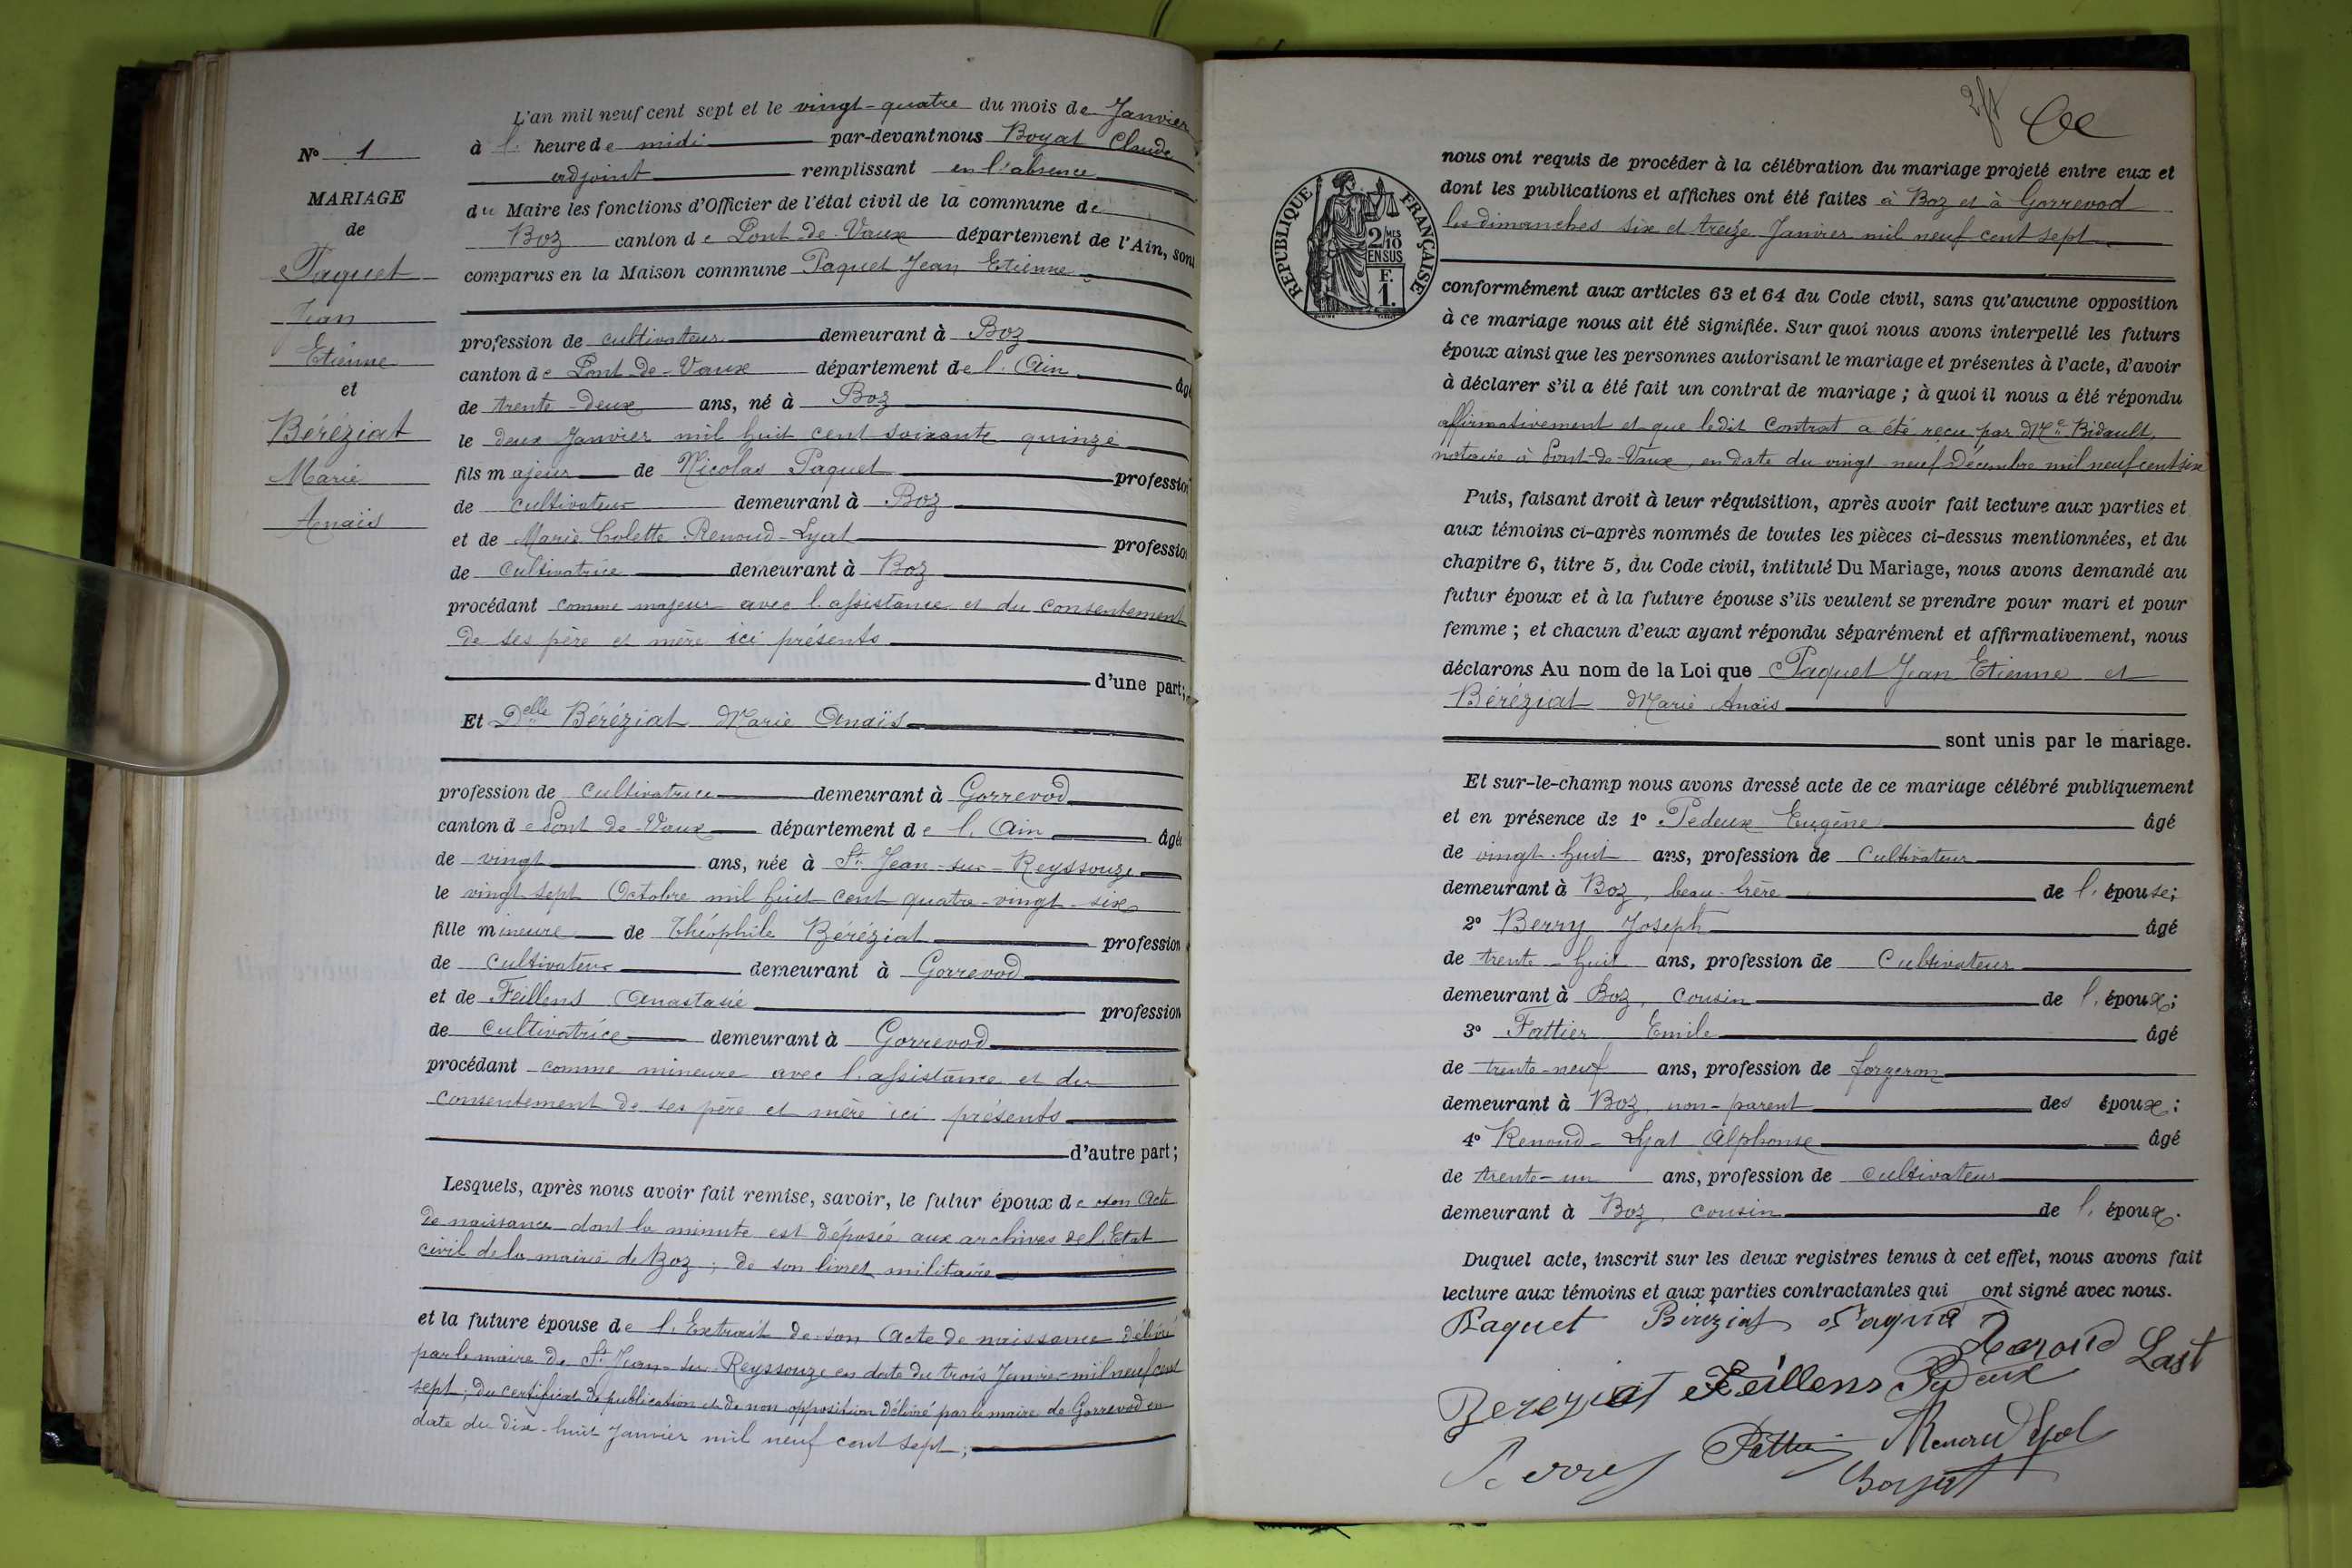 N° 1
MARIAGE
de
Paquet
Jean
Etienne
et
Béréziat
Marie
Anaïs
L'an mil neuf cent sept et le vingt-quatre du mois de Janvier
à l' heure de midi par-devant nous Boyat Claude
adjoint remplissant en l'absence
du Maire les fonctions d'Officier de l'état civil de la commune de
Boz canton de Pont-de-Vaux département de l'Ain, sont
comparus en la Maison commune Paquet Jean Etienne
profession de cultivateur demeurant à Boz
canton de Pont-de-Vaux département de l'Ain âgé
de trente-deux ans, né à Boz
le deux Janvier mil huit cent soixante quinze
fils majeur de Nicolas Paquet profession
de cultivateur demeurant à Boz
et de Marie Colette Renoud-Lyat profession
de cultivatrice demeurant à Boz
procédant comme majeur avec l'assistance et du consentement
de ses père et mère ici présents
d'une part;
Et Delle Béréziat Marie Anaïs
profession de cultivatrice demeurant à Gorrevod
canton de Pont-de-Vaux département de l'Ain âgée
de vingt ans, née à St Jean-sur-Reyssouze
le vingt sept Octobre mil huit cent quatre-vingt-six
fille mineure de Théophile Béréziat profession
de cultivateur demeurant à Gorrevod
et de Feillens Anastasie profession
de cultivatrice demeurant à Gorrevod
procédant comme mineure avec l'assistance et du
consentement de ses père et mère ici présents
d'autre part;
Lesquels, après nous avoir fait remise, savoir, le futur époux de son Acte
de naissance dont la minute est déposée aux archives de l'Etat
civil de la mairie de Boz; de son livret militaire
et la future épouse de l'Extrait de son Acte de naissance délivré
par le maire de St Jean-sur-Reyssouze en date du trois Janvier mil neuf cent
sept; du certificat de publication et de non opposition délivré par le maire de Gorrevod en
date du dix-huit Janvier mil neuf cent sept;
REPUBLIQUE FRANÇAISE
2 MES
10
EN SUS
F.
1.
nous ont requis de procéder à la célébration du mariage projeté entre eux et
dont les publications et affiches ont été faites à Boz et à Gorrevod
les dimanches six et treize Janvier mil neuf cent sept
conformément aux articles 63 et 64 du Code civil, sans qu'aucune opposition
à ce mariage nous ait été signifiée. Sur quoi nous avons interpellé les futurs
époux ainsi que les personnes autorisant le mariage et présentes à l'acte, d'avoir
à déclarer s'il a été fait un contrat de mariage; à quoi il nous a été répondu
affirmativement et que ledit Contrat a été reçu par Me Bidault,
notaire à Pont-de-Vaux, en date du vingt neuf Décembre mil neuf cent six
Puis, faisant droit à leur réquisition, après avoir fait lecture aux parties et
aux témoins ci-après nommés de toutes les pièces ci-dessus mentionnées, et du
chapitre 6, titre 5, du Code civil, intitulé Du Mariage, nous avons demandé au
futur époux et à la future épouse s'ils veulent se prendre pour mari et pour
femme; et chacun d'eux ayant répondu séparément et affirmativement, nous
déclarons Au nom de la Loi que Paquet Jean Etienne et
Béréziat Marie Anaïs
sont unis par le mariage.
Et sur-le-champ nous avons dressé acte de ce mariage célébré publiquement
et en présence de 1° Pedeux Eugène âgé
de vingt-huit ans, profession de cultivateur
demeurant à Boz, beau-frère de l'épouse;
2° Berry Joseph âgé
de trente-huit ans, profession de Cultivateur
demeurant à Boz, cousin de l'époux;
3° Fattier Emile âgé
de trente-neuf ans, profession de forgeron
demeurant à Boz, non-parent des époux;
4° Renoud-Lyat Alphonse âgé
de trente-un ans, profession de cultivateur
demeurant à Boz, cousin de l'époux.
Duquel acte, inscrit sur les deux registres tenus à cet effet, nous avons fait
lecture aux témoins et aux parties contractantes qui ont signé avec nous.
Paquet Béréziat Paquet
Renoud Last
Bereziat Feillens Pedeux
Berry Fattier Renoud Lyat
Boyat